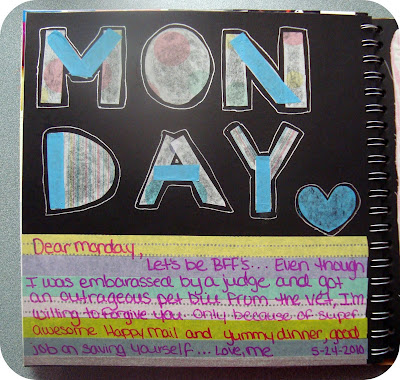 MON
DAY
Dear monday,
Let's be BFF's... Even though
I was embarassed by a judge and got
an outrageous pet bill from the vet, I'm
willing to forgive you. Only because of super
awesome Happy Mail and yummy dinner, good
job on saving yourself... Love, me 5-24-2010